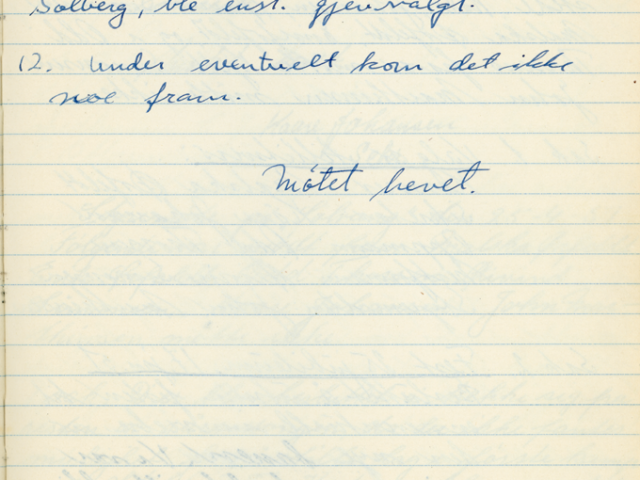 Solberg, ble enst. gjenvalgt.
12. Under eventuelt kom det ikke
noe fram.
Møtet hevet.